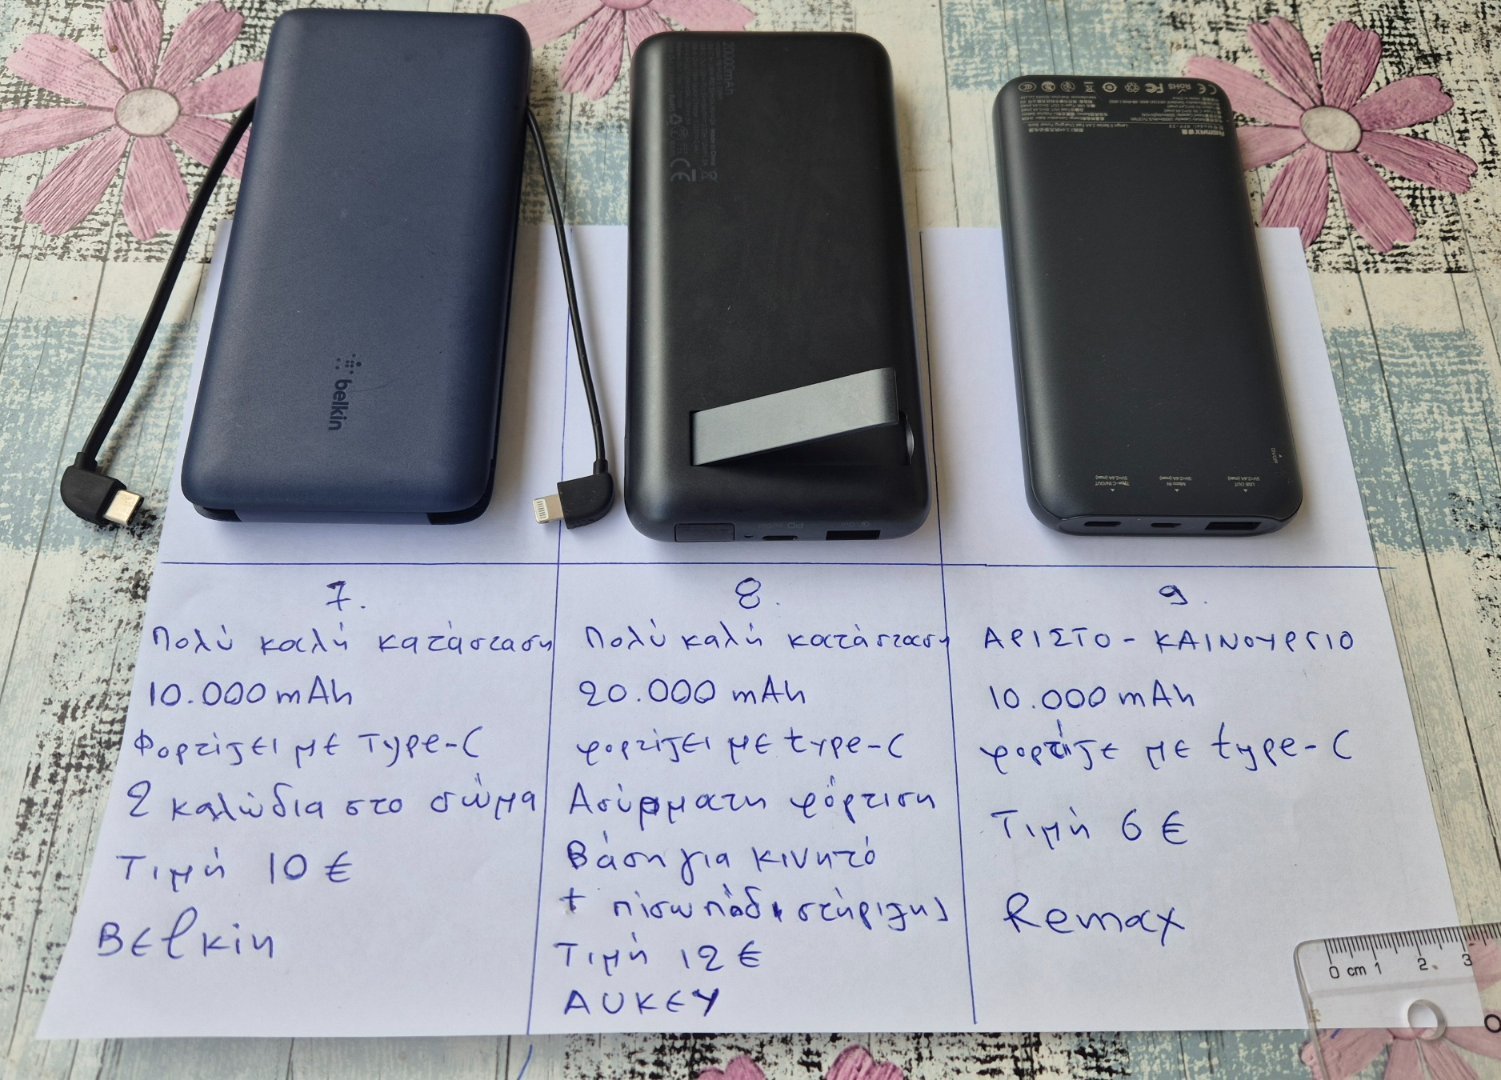 belkin
20000mAh
CE
PD
REMAX
FC
RoHS
CE
ON/OFF
Type-C IN/OUT
Micro IN
USB OUT
7.
Πολύ καλή κατάσταση
10.000mAh
Φορτίζει με Type-C
2 καλώδια στο σώμα
Τιμή 10 €
Belkin
8.
Πολύ καλή κατάσταση
20.000 mAh
φορτίζει με type-C
Ασύρματη φόρτιση
Βάση για κινητό
+ πίσω πόδι στήριξης
Τιμή 12 €
AUKEY
9.
ΑΡΙΣΤΟ - ΚΑΙΝΟΥΡΓΙΟ
10.000 mAh
φορτίζε με type-C
Τιμή 6 €
Remax
0 cm 1 2 3